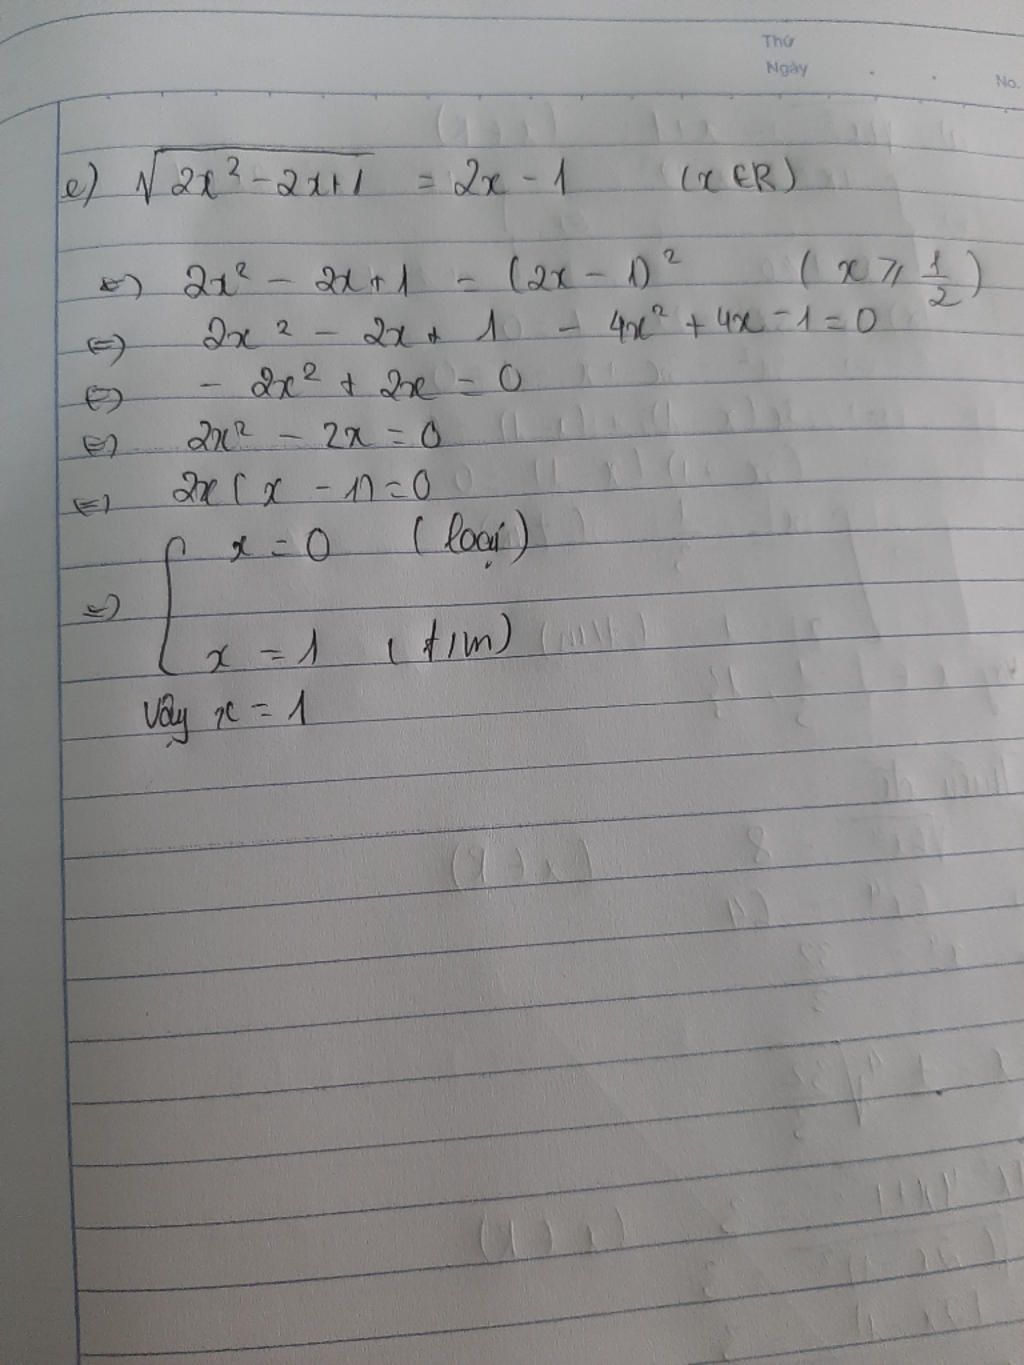 Thứ
Ngày
No.
e) √(2x² - 2x+1) = 2x - 1 (x ∈ R)
⇔ 2x² - 2x+1 = (2x - 1)² (x ≥ 1/2)
⇔ 2x² - 2x + 1 - 4x² + 4x - 1 = 0
⇔ - 2x² + 2x = 0
⇔ 2x² - 2x = 0
⇔ 2x(x - 1) = 0
⇔ [ x = 0 (loại)
x = 1 (t/m)
Vậy x = 1